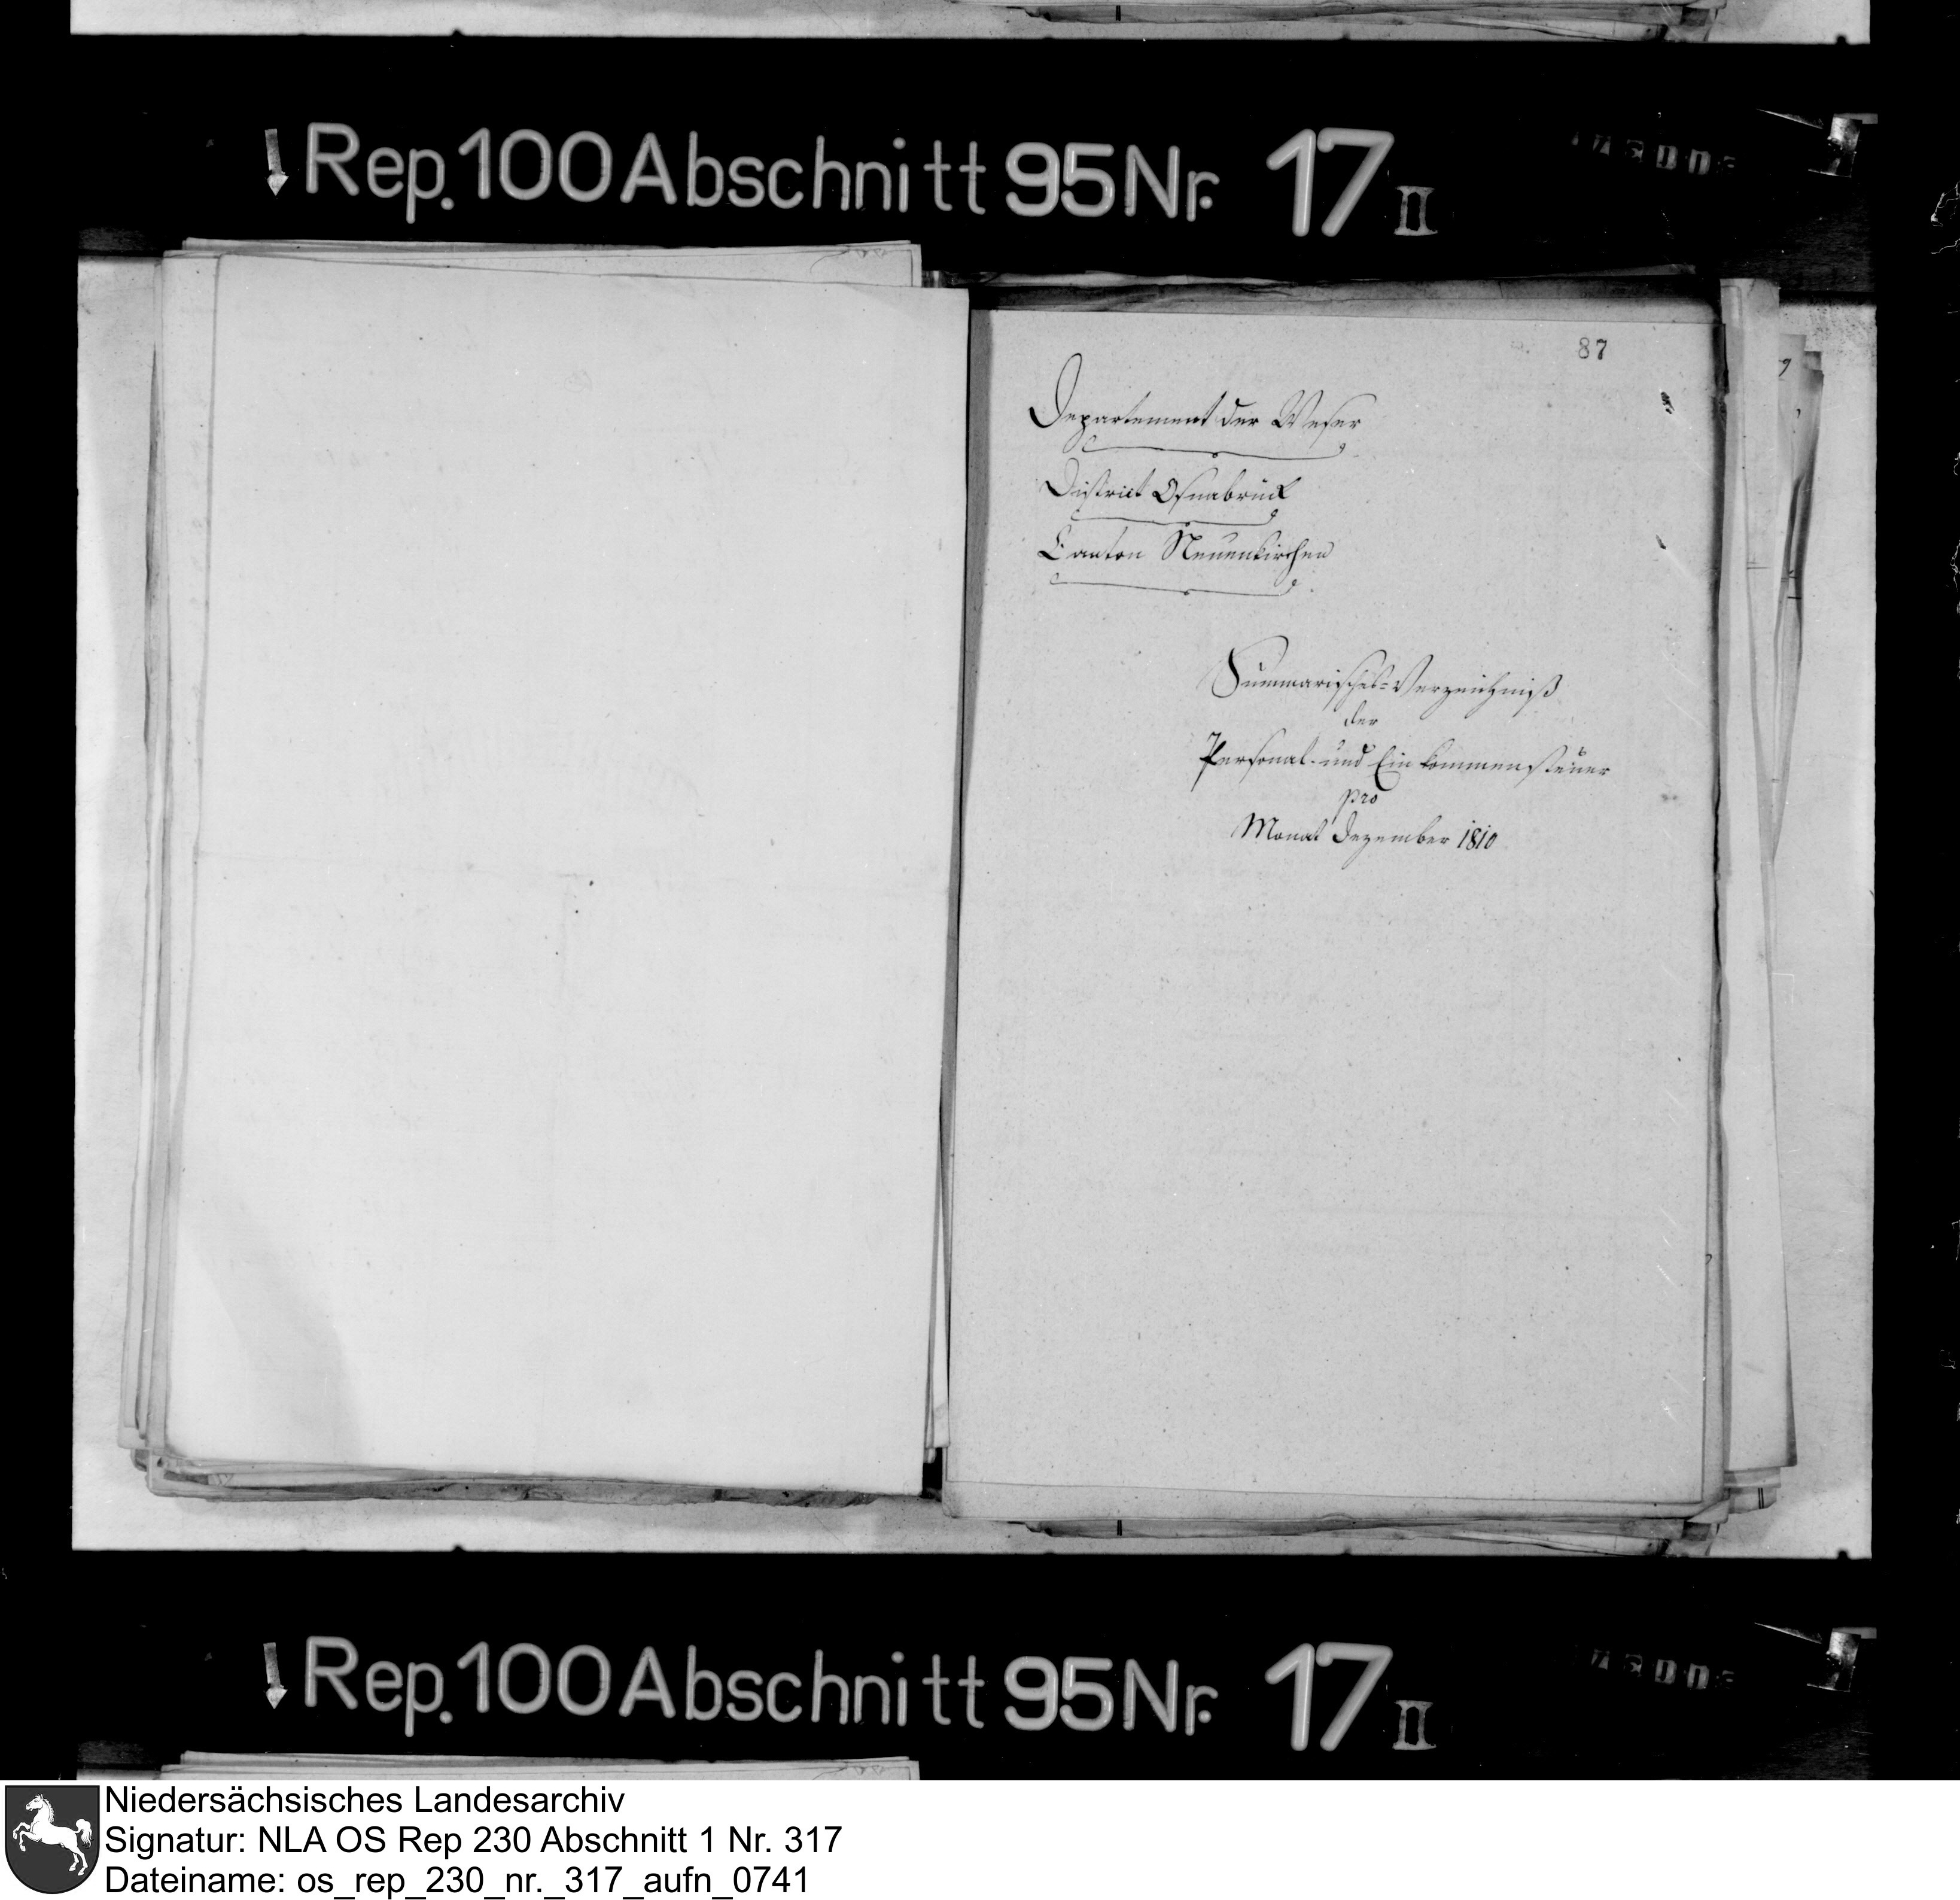 Rep. 100 Abschnitt 95 Nr. 17 II
87
Departement der Weser
District Osnabrück
Canton Neuenkirchen
Summarisches-Verzeichniß
der
Personal- und Einkommensteuer
pro
Monat Dezember 1810
Rep. 100 Abschnitt 95 Nr. 17 II
Niedersächsisches Landesarchiv
Signatur: NLA OS Rep 230 Abschnitt 1 Nr. 317
Dateiname: os_rep_230_nr._317_aufn_0741